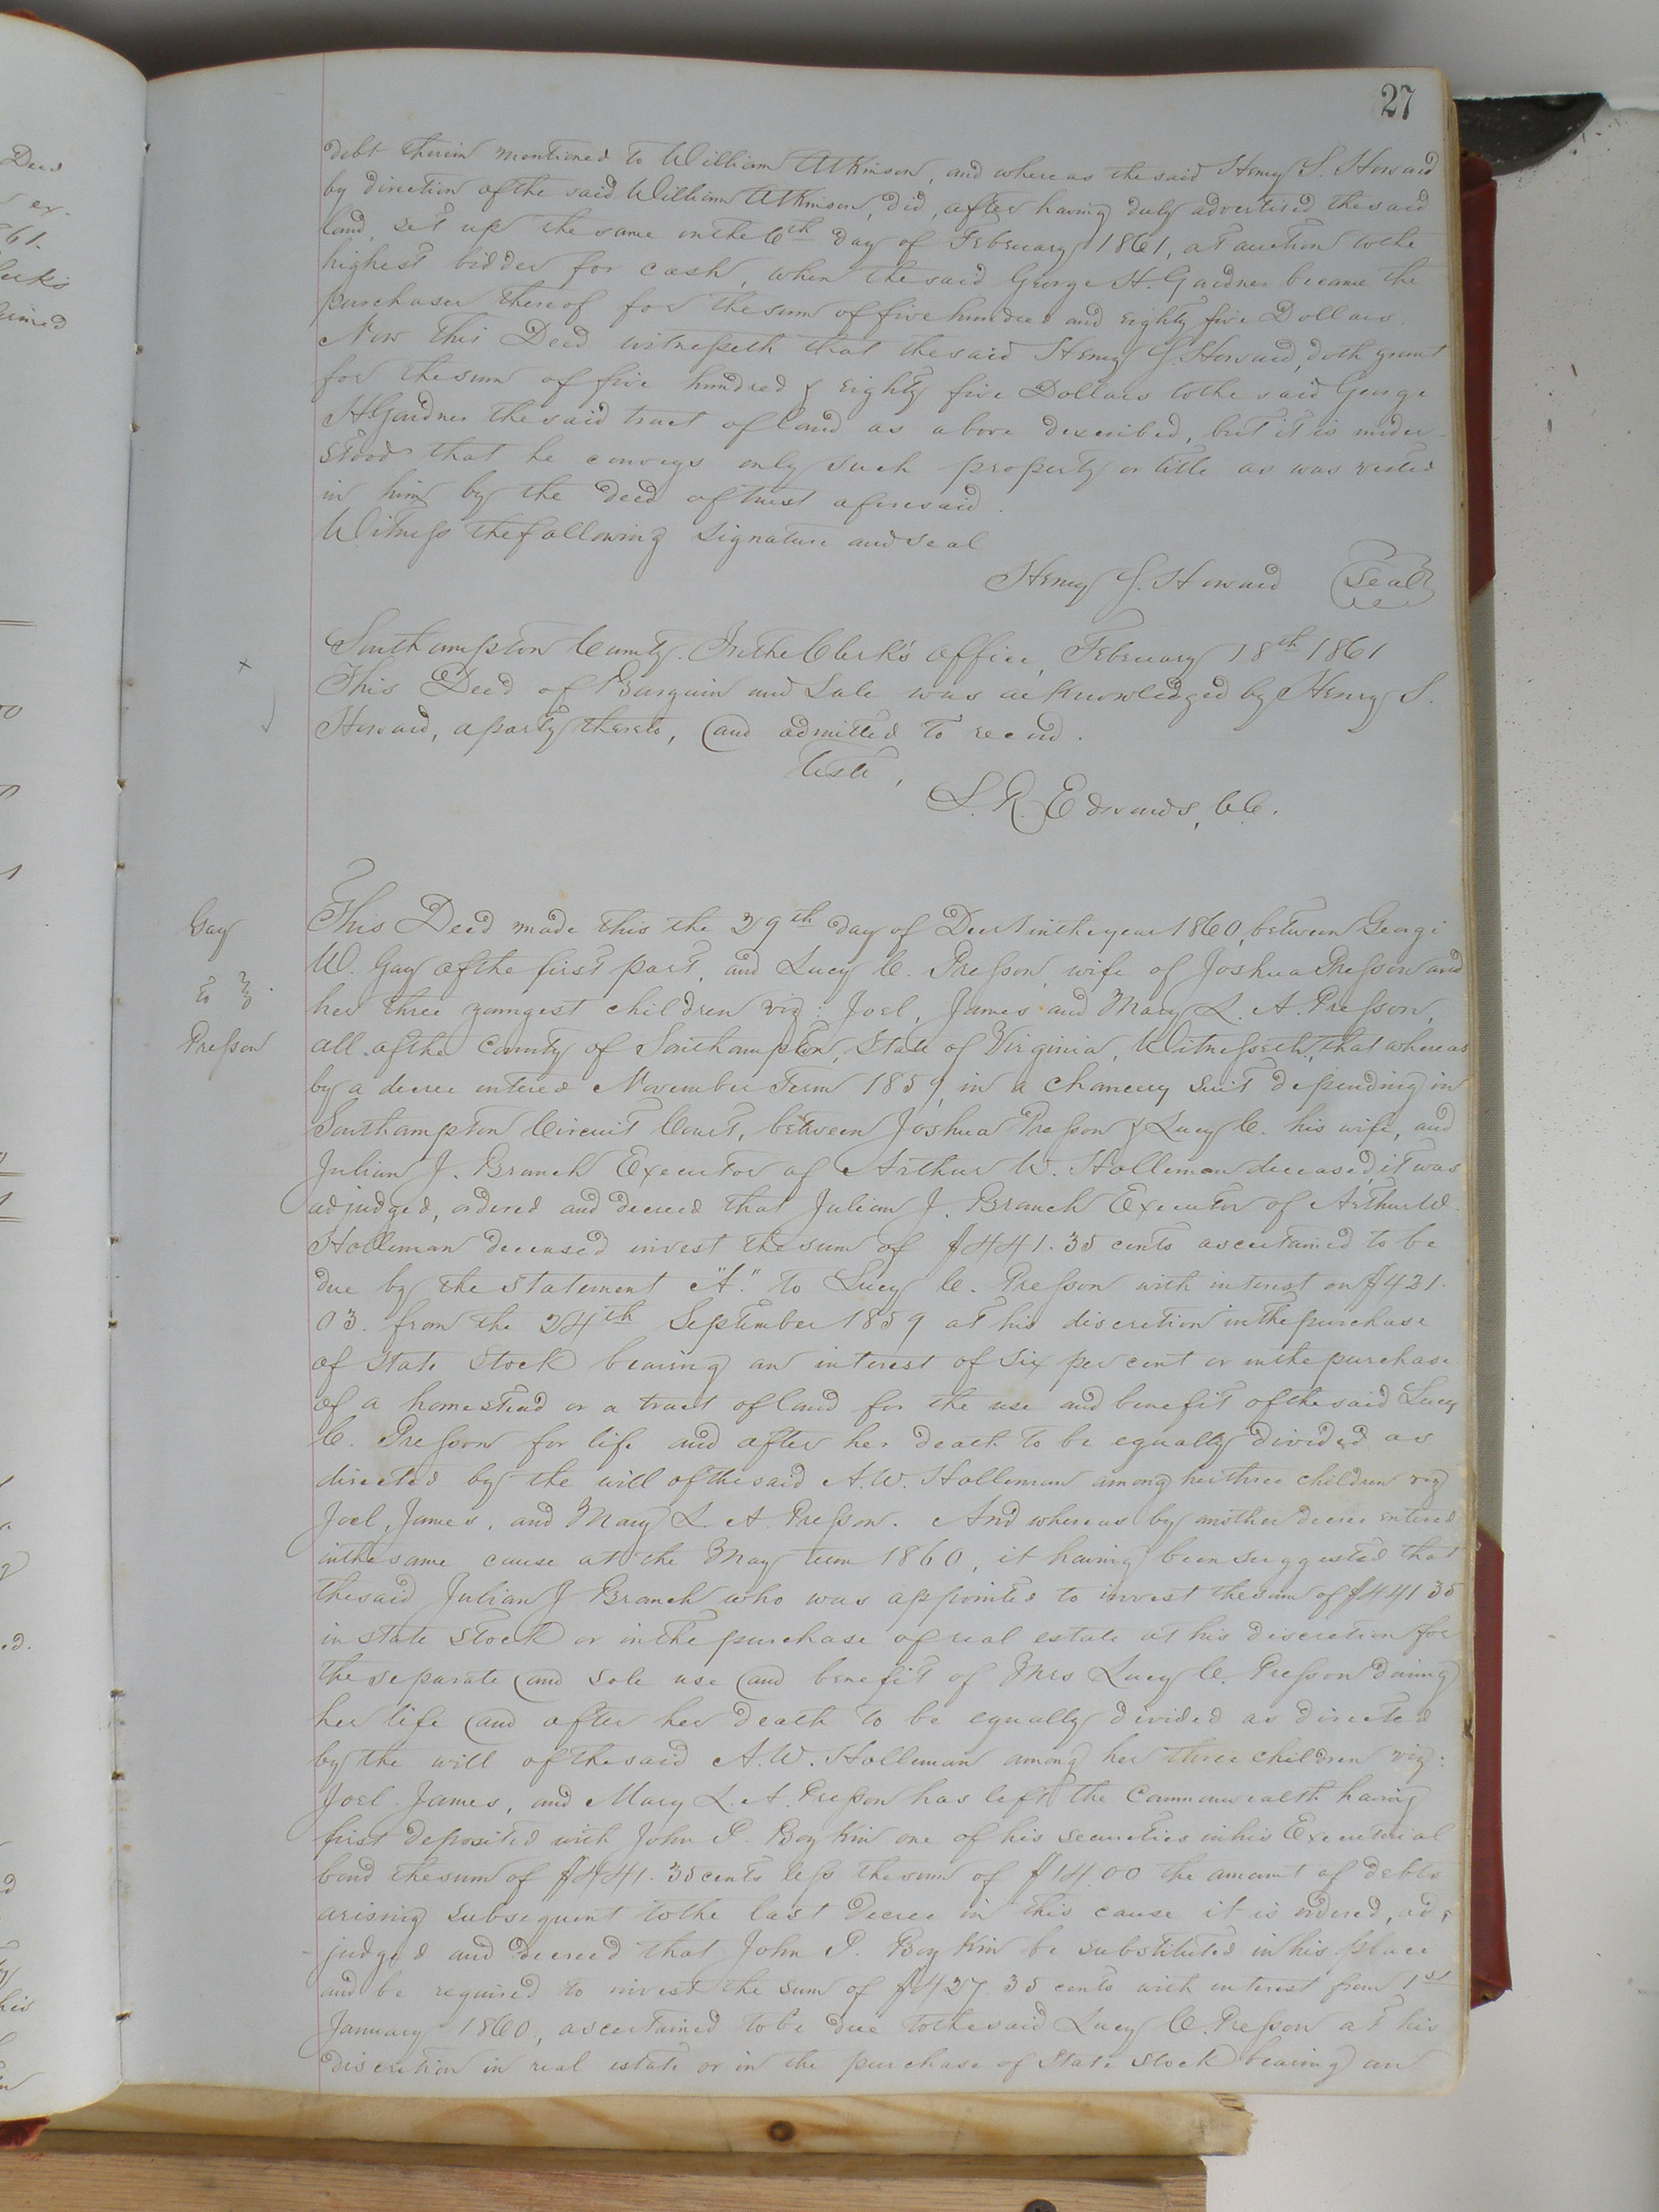 27
debt therein mentioned to William Atkinson, and whereas the said Henry S. Howard
by direction of the said William Atkinson, did, after having duly advertised the said
land, set up the same on the 6th day of February 1861, at auction to the
highest bidder for cash, when the said George H. Gardner became the
purchaser thereof for the sum of five hundred and eighty five Dollars.
Now this Deed witnesseth that the said Henry S. Howard, doth grant
for the sum of five hundred & eighty five Dollars to the said George
H Gardner the said tract of land as above described, but it is under-
stood that he conveys only such property or title as was vested
in him by the deed of trust aforesaid.
Witness the following signature and seal
Henry S. Howard Seal
Southampton County. In the Clerk's office, February 18th 1861
This Deed of Bargain and Sale was acknowledged by Henry S.
Howard, a party thereto, and admitted to record.
Teste,
S. R. Edwards, CC.
Gay
to
Presson
This Deed made this the 29th day of Decr in the year 1860, between George
W. Gay of the first part, and Lucy C. Presson, wife of Joshua Presson and
her three youngest children viz: Joel, James and Mary L. A. Presson,
all of the County of Southampton, State of Virginia, Witnesseth, that whereas
by a decree entered November Term 1859, in a chancery suit depending in
Southampton Circuit Court, between Joshua Presson & Lucy C. his wife, and
Julian J. Branch Executor of Arthur W. Holleman deceased, it was
adjudged, ordered and decreed that Julian J. Branch Executor of Arthur W.
Holleman deceased invest the sum of $441.35 cents ascertained to be
due by the statement "A." to Lucy C. Presson with interest on $431.
03. from the 24th September 1859 at his discretion in the purchase
of State Stock bearing an interest of six per cent or in the purchase
of a homestead or a tract of land for the use and benefit of the said Lucy
C. Presson for life and after her death to be equally divided as
directed by the will of the said A. W. Holleman among her three children viz
Joel, James, and Mary L. A. Presson. And whereas by another decree entered
in the same cause at the May term 1860, it having been suggested that
the said Julian J Branch who was appointed to invest the sum of $441 35
in state stock or in the purchase of real estate at his discretion for
the separate and sole use and benefit of Mrs Lucy C. Presson during
her life and after her death to be equally divided as directed
by the will of the said A. W. Holleman among her three children viz:
Joel. James, and Mary L. A. Presson has left the Commonwealth having
first deposited with John P. Boykin one of his securities in his Executorial
bond the sum of $441.35 cents less the sum of $14.00 the amount of debts
arising subsequent to the last decree in this cause it is ordered, ad-
judged and decreed that John P. Boykin be substituted in his place
and be required to invest the sum of $427.35 cents with interest from 1st
January 1860, ascertained to be due to the said Lucy C. Presson at his
discretion in real estate or in the purchase of State Stock bearing an